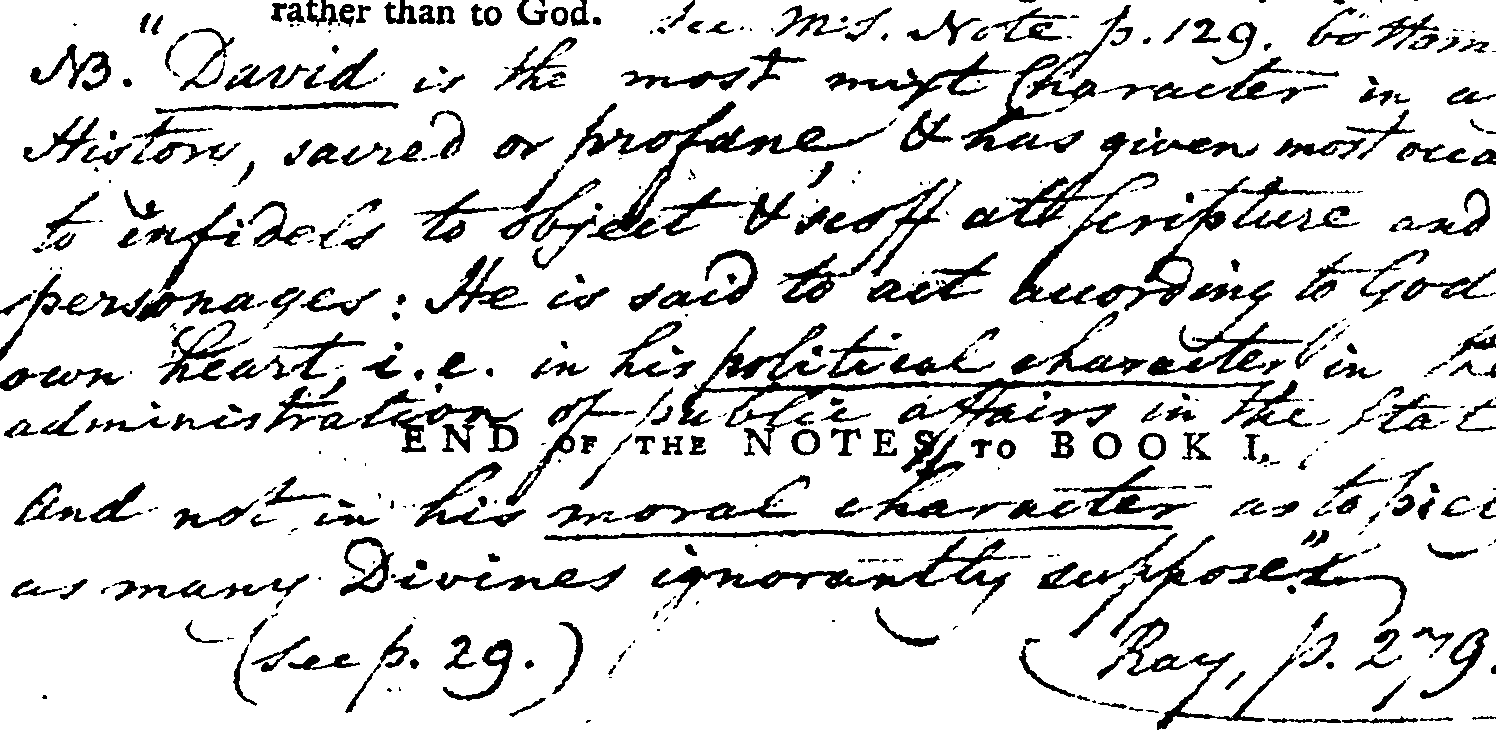 rather than to God. See MS. Note p. 129. bottom
NB. "David is the most mixt Character in a
History, sacred or profane, & has given most occa
to infidels to object & scoff att Scripture and
personages: He is said to act according to God
own heart, i.e. in his political character in the
administration of public affairs in the Stat
END OF THE NOTES TO BOOK I.
And not in his moral character as to piet
as many Divines ignorantly suppose."
(see p. 29.) Ray, p. 279.